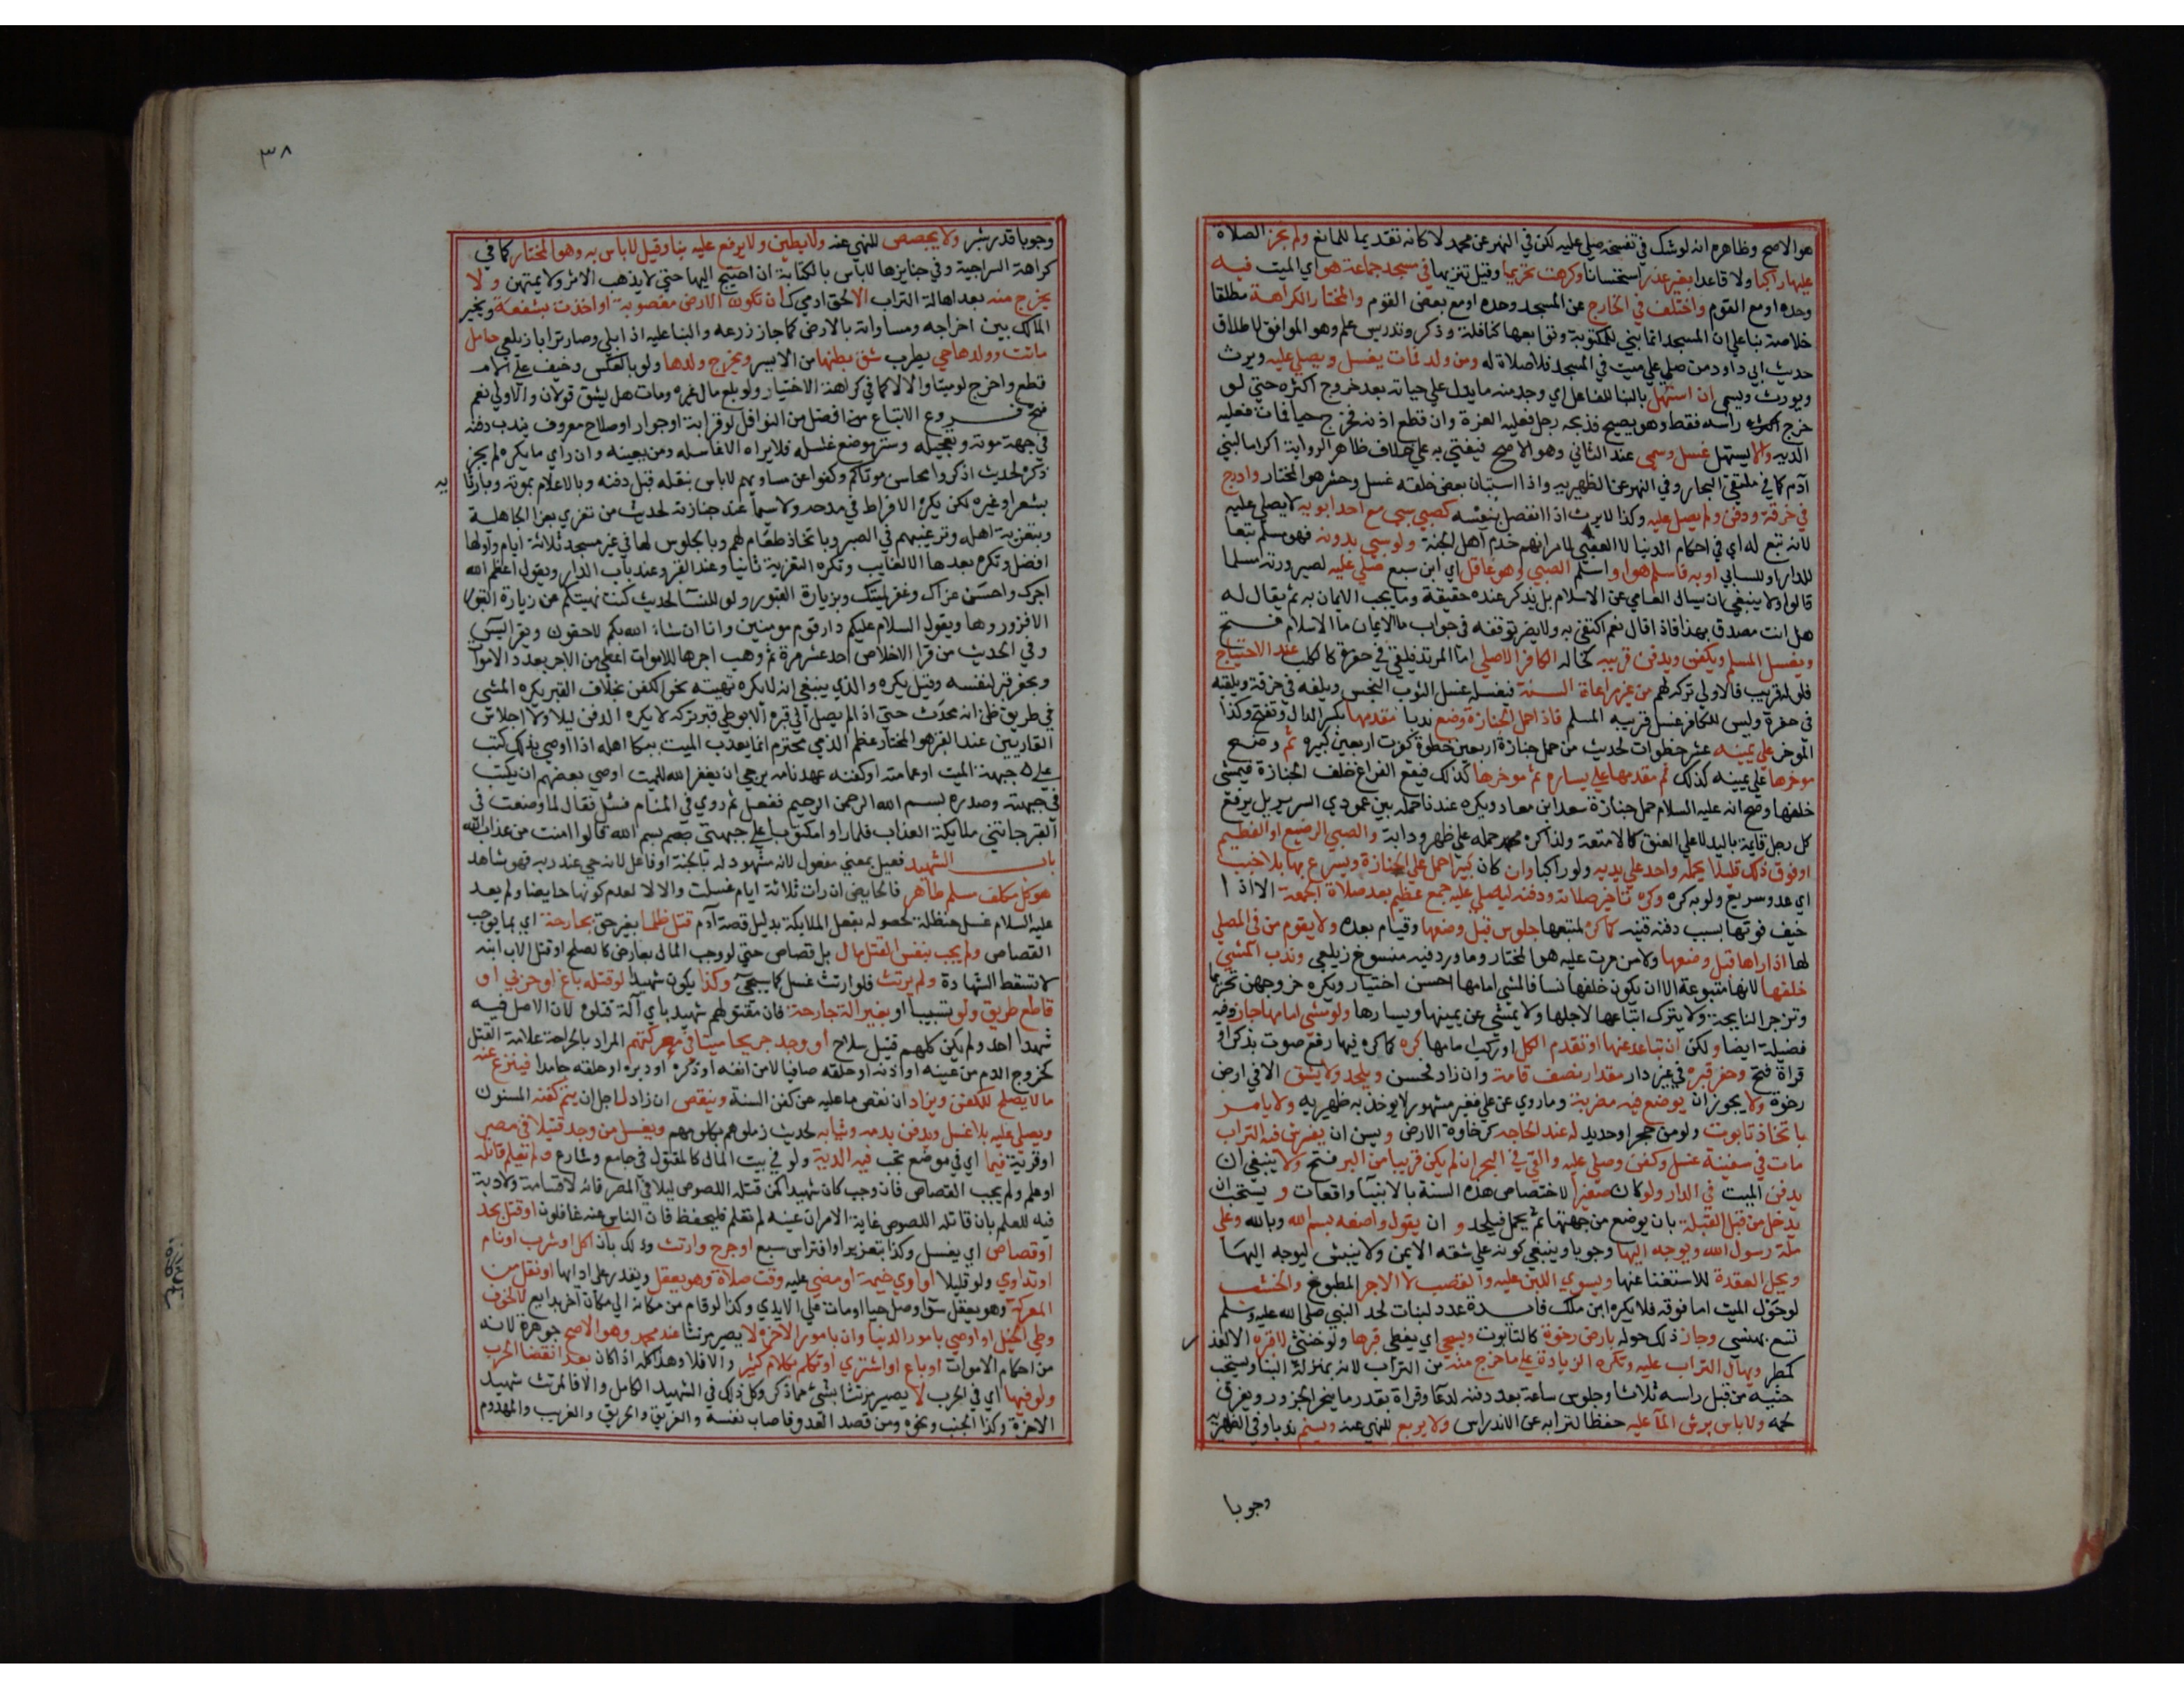 هو الاصح وظاهره انه لو شك في تفسخه صلي عليه لكن في النهر عن محمد لا كانه تقديما للمانع ولم يجز الصلاة
عليها راكبا ولا قاعدا بغير عذر استحسانا وكرهت تحريما وقيل تنزيها في مسجد جماعة هو اي الميت فيه
وحده او مع القوم واختلف في الخارج عن المسجد وحده او مع بعض القوم والمختار الكراهة مطلقا
خلاصة بنا علي ان المسجد انما بني للمكتوبة وتوابعها كنافلة وذكر وتدريس علم وهو الموافق لاطلاق
حديث ابي داود من صلي علي ميت في المسجد فلا صلاة له ومن ولد فمات يغسل ويصلي عليه ويرث
ويورث ويسمي ان استهل بالبنا للفاعل اي وجد منه ما يدل علي حياته بعد خروج اكثره حتي لو
خرج راسه فقط وهو يصيح فذبحه رجل فعليه الغرة وان قطع اذنه فخرج حيا فمات فعليه
الدية والا يستهل غسل وسمي عند الثاني وهو الاصح فيفتي به علي خلاف ظاهر الرواية اكراما لبني
آدم كما في ملتقي البحار وفي النهر عن الظهيريه واذا استبان بعض خلقه غسل وحشر هو المختار وادرج
في خرقة ودفن ولم يصل عليه وكذا لا يرث اذا انفصل بنفسه كصبي سبي مع احد ابويه لا يصلي عليه
لانه تبع له اي في احكام الدنيا لا العقبي لما مر انهم خدم اهل الجنة ولو سبي بدونه فهو مسلم تبعا
للدار او للسابي او به فاسلم هو او اسلم الصبي وهو عاقل اي ابن سبع صلي عليه لصيرورته مسلما
قالوا ولا ينبغي ان يسال العامي عن الاسلام بل يذكر عنده حقيقة وما يجب الايمان به ثم يقال له
هل انت مصدق بهذا فاذا قال نعم اكتفي به ولا يضر توقفه في جواب ما الايمان ما الاسلام فتح
ويغسل المسلم ويكفن ويدفن قريبه كخاله الكافر الاصلي اما المرتد فيلقي في حفرة كالكلب عند الاحتياج
فلو له قريب فالاولي تركه لهم من غير مراعاة السنة فيغسله غسل الثوب النجس ويلفه في خرقة ويلقيه
في حفرة وليس للكافر غسل قريبه المسلم فاذا حمل الجنازة وضع ندبا مقدمها بكسر الدال وتفتح وكذا
الموخر علي يمينه عشر خطوات لحديث من حمل جنازة اربعين خطوة كفرت اربعين كبيره ثم وضع
موخرها علي يمينه كذلك ثم مقدمها علي يساره ثم موخرها كذلك فيقع الفراغ خلف الجنازة فيمشي
خلفها وصح انه عليه السلام حمل جنازة سعد ابن معاد ويكره عندنا حمله بين عمودي السرير بل يرفع
كل رجل قايمة باليد لا علي العنق كالامتعة ولذا كره حمله علي ظهر ودابة والصبي الرضيع او الفطيم
او فوق ذلك قليلا يحمله واحد علي يديه ولو راكبا وان كان كبيرا حمل علي الجنازة ويسرع بها بلا خبب
اي عدو سريع ولو به كره وكره تاخير صلاته ودفنه ليصلي عليه جمع عظيم بعد صلاة الجمعة الا اذا
خيف فوتها بسبب دفنه قنيه كما كره لمتبعها جلوس قبل وضعها وقيام بعده ولا يقوم من في المصلي
لها اذا راها قبل وضعها ولا من مرت عليه هو المختار وما ورد فيه منسوخ زيلعي وندب المشي
خلفها لانها متبوعة الا ان يكون خلفها نسا فالمشي امامها احسن اختيار ويكره خروجهن تحريما
وتزجر النايحة ولا يترك اتباعها لاجلها ولا يمشي عن يمينها ويسارها ولو مشي امامها جاز وفيه
فضيلة ايضا ولكن ان تباعد عنها او تقدم الكل او ركب امامها كره كما كره فيها رفع صوت بذكر او
قراة فتح وحفر قبره في غير دار مقدار نصف قامة وان زاد فحسن ويلحد ولا يشق الا في ارض
رخوة ولا يجوز ان يوضع فيه مضربة وما روي عن علي فغير مشهور لا يوخذ به ظهيريه ولا باس
باتخاذ تابوت ولو من حجر او حديد له عند الحاجه كرخاوة الارض ويسن ان يفرش فيه التراب
مات في سفينة غسل وكفن وصلي عليه والقي في البحر ان لم يكن قريبا من البر فتح ولا ينبغي ان
يدفن الميت في الدار ولو كان صغيرا لاختصاص هذه السنة بالانبيا واقعات ويستحب ان
يدخل من قبل القبلة بان يوضع من جهتها ثم يحمل فيلحد و ان يقول واضعه بسم الله وبالله وعلي
ملة رسول الله ويوجه اليها وجوبا وينبغي كونه علي شقه الايمن ولا ينبش ليوجه اليها
ويحل العقدة للاستغنا عنها ويسوي اللبن عليه والقصب لا الاجر المطبوخ والخشب
لو حول الميت اما فوقه فلا يكره ابن ملك فائدة عدد لبنات لحد النبي صلي الله عليه وسلم
تسع بهنسي وجاز ذلك حوله بارض رخوة كالتابوت ويسجي اي يغطي قبرها ولو خنثي لا قبره الا لعذر
كمطر ويهال التراب عليه وتكره الزيادة علي ما خرج منه من التراب لانه بمنزلة البنا ويستحب
حثيه من قبل راسه ثلاثا وجلوس ساعة بعد دفنه لدعا وقراة بقدر ما ينحر الجزور ويفرق
لحمه ولا باس برش الما عليه حفظا لترابه عن الاندراس ولا يربع للنهي عنه ويسنم ندبا وفي الظهرية
وجوبا
٣٨
وجوبا قدر شبر ولا يجصص للنهي عنه ولا يطين ولا يرفع عليه بنا وقيل لا باس به وهو المختار كما في
كراهة السراجية وفي جنايزها لا باس بالكتابة ان احتيج اليها حتي لا يذهب الاثر ولا يمتهن ولا
يخرج منه بعد اهالة التراب الا لحق ادمي كان تكون الارض مغصوبة او اخذت بشفعة ويخير
المالك بين اخراجه ومساواته بالارض كما جاز زرعه والبنا عليه اذا بلي وصار ترابا زيلعي حامل
ماتت وولدها حي يطرب شق بطنها من الايسر ويخرج ولدها ولو بالعكس وخيف علي الام
قطع واخرج لو ميتا والا لا كما في كراهة الاختيار ولو بلع مال غيره ومات هل يشق قولان والاولي نعم
فتح فروع الاتباع افضل من النوافل لو قرابة او جوار او صلاح معروف يندب دفنه
في جهة موته وتعجيله وستر موضع غسله فلا يراه الا غاسله ومن يعينه وان راي ما يكره لم يجز
ذكره لحديث اذكروا محاسن موتاكم وكفوا عن مساويهم لا باس بنقله قبل دفنه وبالاعلام بموته وبارثائه
بشعر او غيره لكن يكره الافراط في مدحه ولا سيما عند جنازته لحديث من تعزي بعزا الجاهلية
وبتعزية اهله وترغيبهم في الصبر وباتخاذ طعام لهم وبالجلوس لها في غير مسجد ثلاثة ايام واولها
افضل وتكره بعدها الا لغايب وتكره التعزية ثانيا وعند القبر وعند باب الدار ويقول اعظم الله
اجرك واحسن عزاك وغفر لميتك وبزيارة القبور ولو للنسا لحديث كنت نهيتكم عن زيارة القبور
الا فزوروها ويقول السلام عليكم دار قوم مومنين وانا ان شاء الله بكم لاحقون ويقرا ليس
وفي الحديث من قرا الاخلاص احد عشر مرة ثم وهب اجرها للاموات اعطي من الاجر بعدد الاموات
ويحفر قبر لنفسه وقيل يكره والذي ينبغي انه لا يكره تهيئة نحو الكفن بخلاف القبر يكره المشي
في طريق ظن انه محدث حتي اذا لم يصل الي قبره الا بوطي قبر تركه لا يكره الدفن ليلا ولا اجلاس
القاريين عند القبر هو المختار عظم الذمي محترم انما يعذب الميت ببكا اهله اذا اوصي بذلك كتب
علي جبهة الميت او عمامته او كفنه عهد نامه يرجي ان يغفر الله للميت اوصي بعضهم ان يكتب
في جبهته وصدره بسم الله الرحمن الرحيم ففعل ثم روي في المنام فسئل فقال لما وضعت في
القبر جاتني ملايكة العذاب فلما راوا مكتوبا علي جبهتي بسم الله قالوا امنت من عذاب الله
باب الشهيد فعيل بمعني مفعول لانه مشهود له بالجنة او فاعل لانه حي عند ربه فهو شاهد
هو كل مكلف مسلم طاهر فالحايض ان رات ثلاثة ايام غسلت والا لا لعدم كونها حايضا ولم يعد
عليه السلام غسل حنظلة لحصوله بفعل الملايكة بدليل قصة آدم قتل ظلما بغير حق بجارحة اي بما يوجب
القصاص ولم يجب بنفس القتل مال بل قصاص حتي لو وجب المال بعارض كالصلح او قتل الاب ابنه
لا تسقط الشهادة ولم يرتث فلو ارتث غسل كما سيجي وكذا يكون شهيدا لو قتله باغ او حربي او
قاطع طريق ولو تسببا او بغير الة جارحة فان مقتولهم شهيد باي آلة قتلوه لان الاصل فيه
شهدا احد ولم يكن كلهم قتيل سلاح أو وجد جريحا ميتا في معركتهم المراد بالجراحة علامة القتل
كخروج الدم من عينه او اذنه او حلقه صافيا لا من انفه او ذكره او دبره او حلقه جامدا فينزع عنه
ما لا يصلح للكفن ويزاد ان نقص ما عليه عن كفن السنة وينقص ان زاد لاجل ان يتم كفنه المسنون
ويصلي عليه بلا غسل ويدفن بدمه وثيابه لحديث زملوهم بكلومهم ويغسل من وجد قتيلا في مصر
او قرية فيما اي في موضع تجب فيه الدية ولو في بيت المال كالمقتول في جامع وشارع ولم يعلم قاتله
او علم ولم يجب القصاص فان وجب كان شهيدا كمن قتله اللصوص ليلا في المصر فانه لا قسامة ولا دية
فيه للعلم بان قاتله اللصوص غاية الامر ان عينه لم تعلم فليحفظ فان الناس عنه غافلون او قتل بحد
او قصاص اي يغسل وكذا بتعزير او افتراس سبع او جرح وارتث وذلك بان اكل او شرب او نام
او تداوي ولو قليلا او اوي خيمة او مضي عليه وقت صلاة وهو يعقل ويقدر علي ادايها او نقل من
المعركة وهو يعقل سوا وصل حيا او مات علي الايدي وكذا لو قام من مكانه الي مكان آخر بدايع لا لخوف
وطي الخيل او اوصي بامور الدنيا وان بامور الاخرة لا يصير مرتثا عند محمد وهو الاصح جوهره لانه
من احكام الاموات او باع او اشتري او تكلم بكلام كثير والا فلا وهذا كله اذا كان بعد انقضا الحرب
ولو فيها اي في الحرب لا يصير مرتثا بشئ مما ذكر وكل ذلك في الشهيد الكامل والا فالمرتث شهيد
الاخرة وكذا الجنب ونحوه ومن قصد العدو فاصاب نفسه والغريق والحريق والغريب والمهدوم